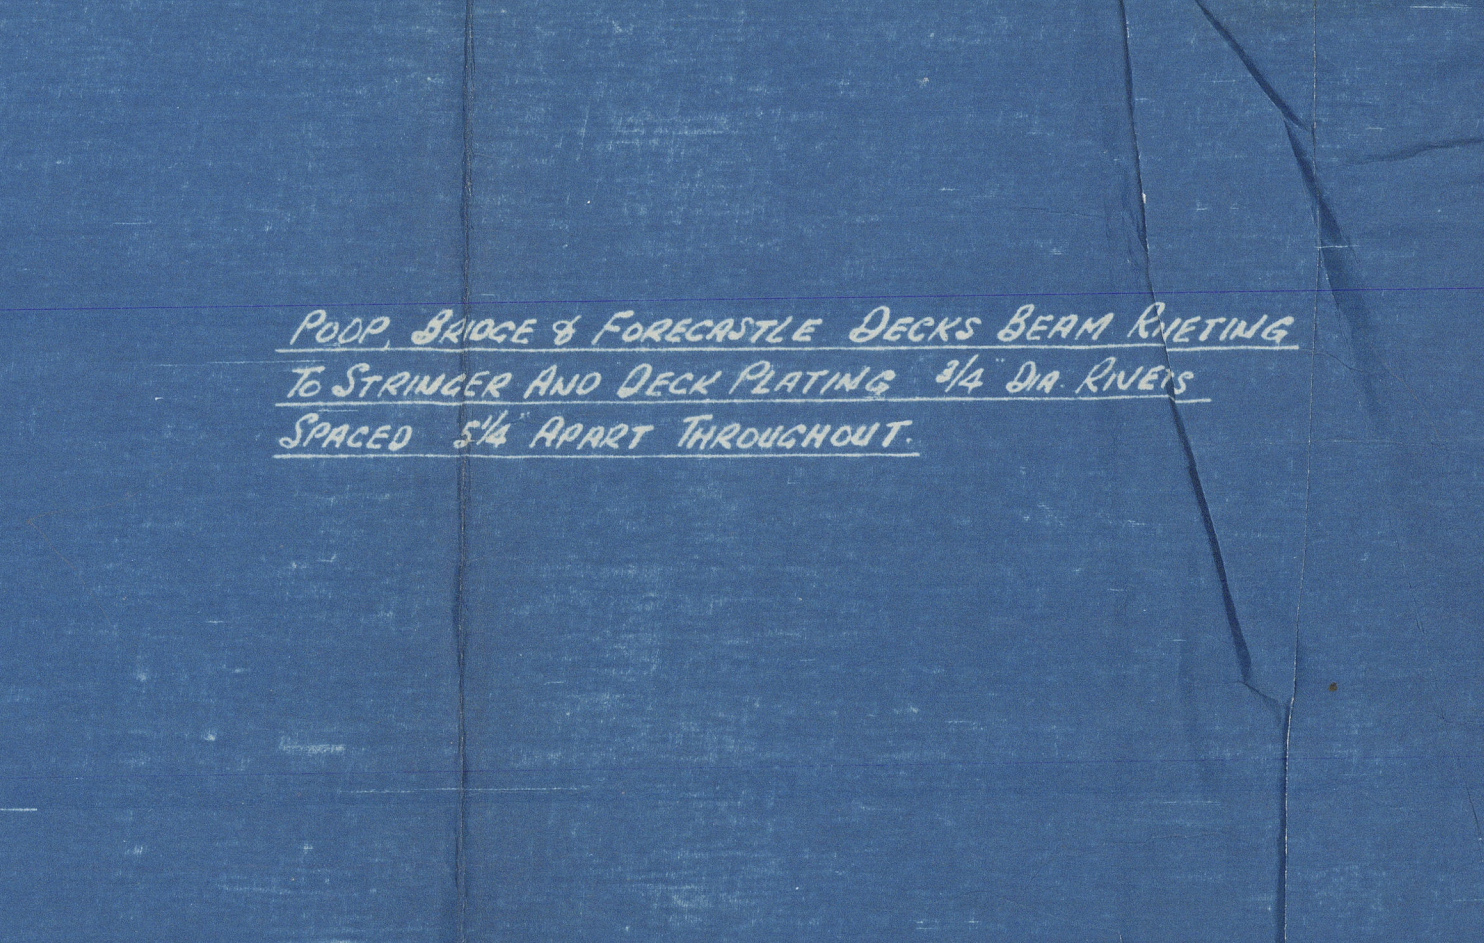 POOP, BRIDGE & FORECASTLE DECKS BEAM RIVETING
TO STRINGER AND DECK PLATING 3/4" DIA RIVETS
SPACED 5 1/4" APART THROUGHOUT.